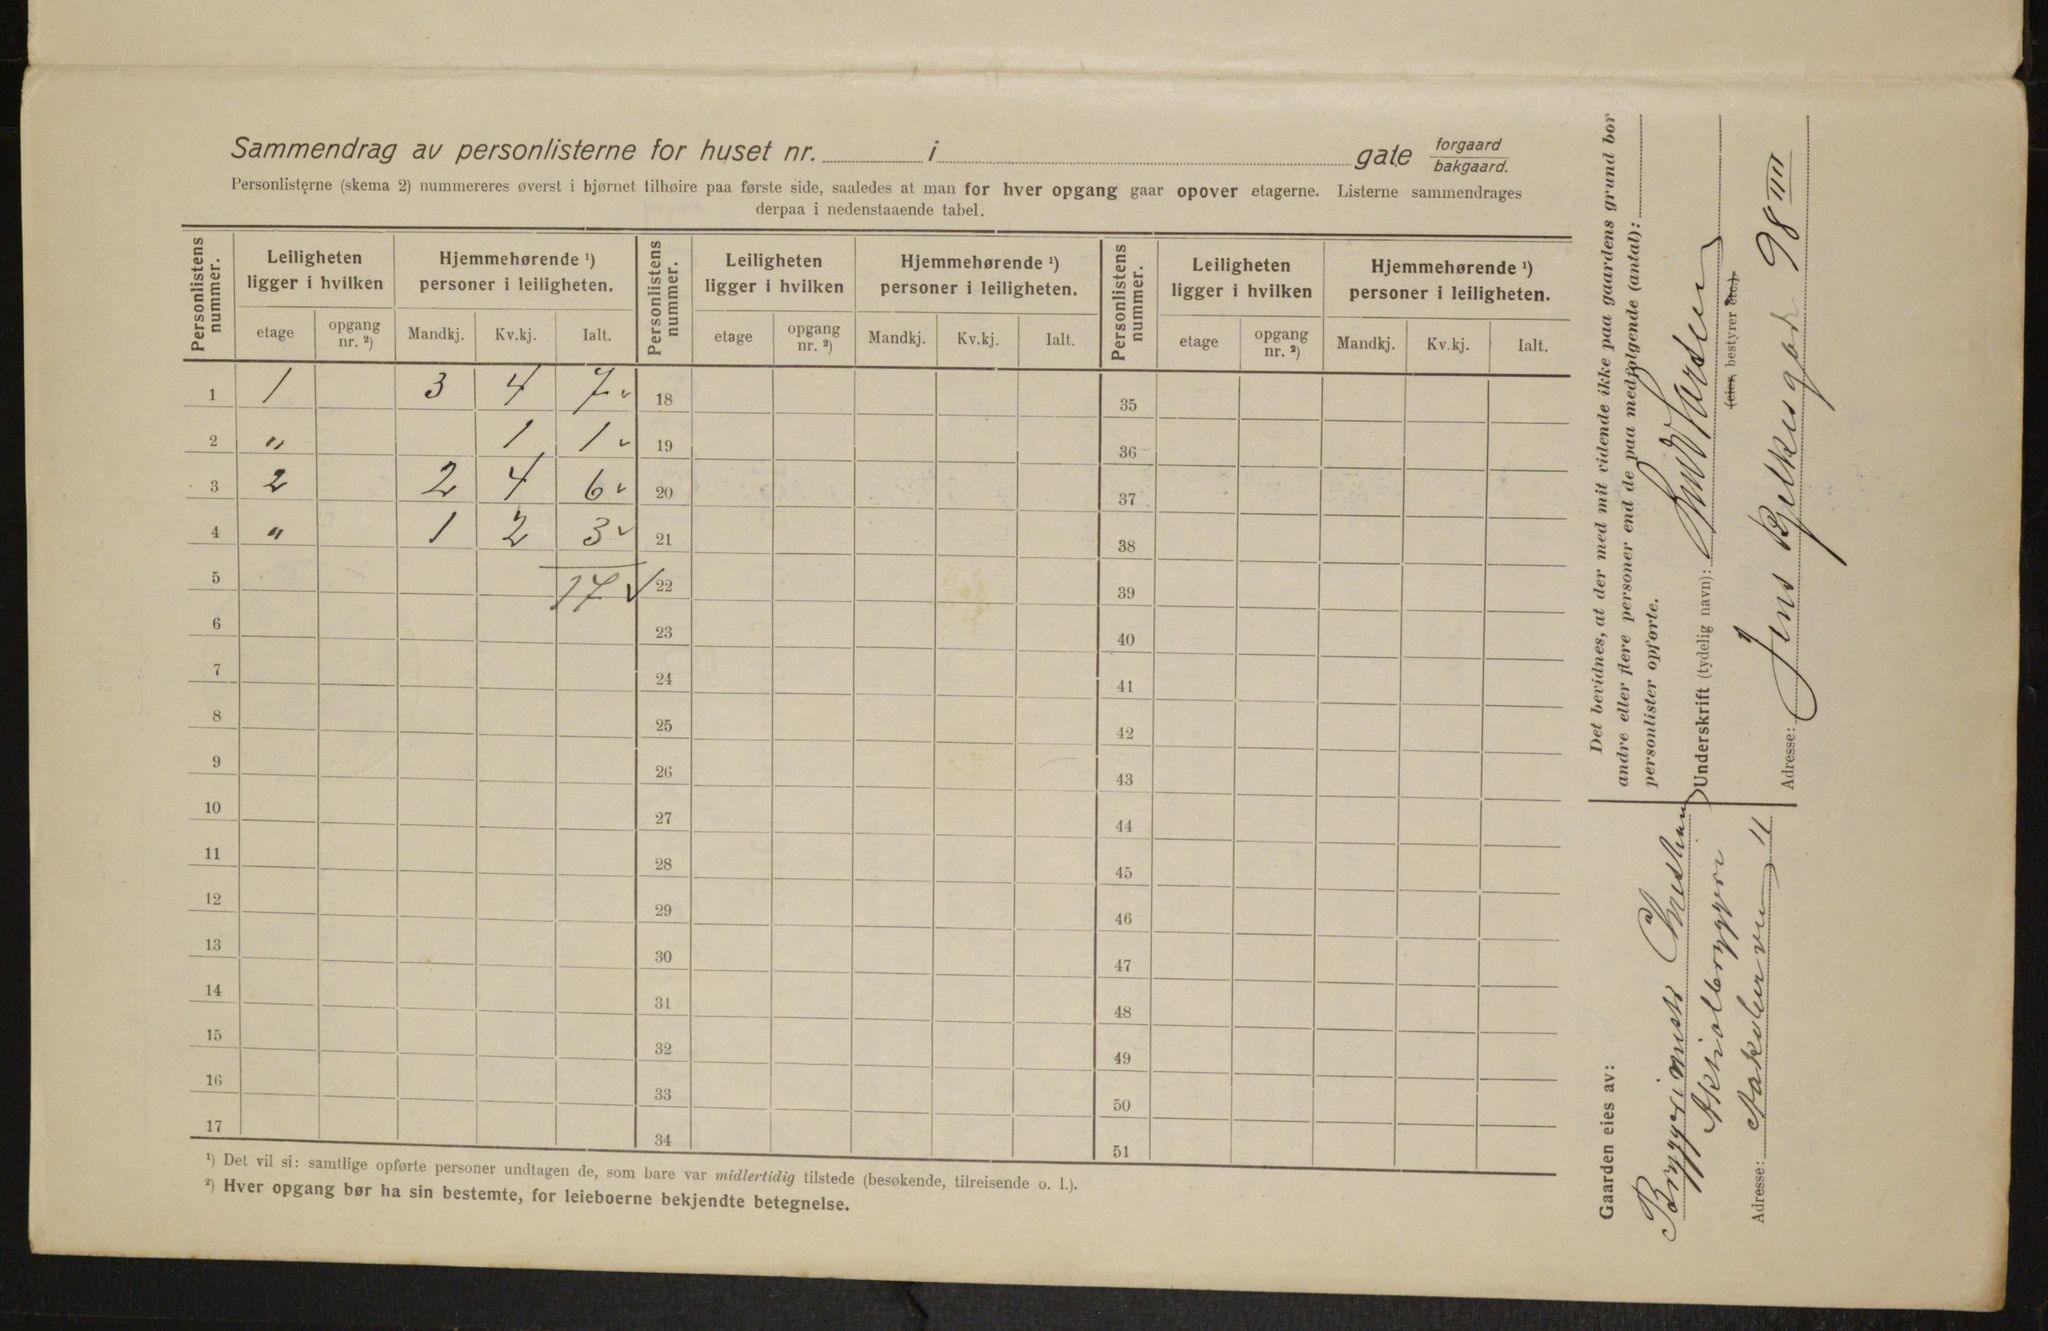 Sammendrag av personlisterne for huset nr. i gate forgaard bakgaard.
Personlisterne (skema 2) nummereres øverst i hjørnet tilhøire paa første side, saaledes at man for hver opgang gaar opover etagerne. Listerne sammendrages
derpaa i nedenstaaende tabel.
Personlistens nummer. Leiligheten ligger i hvilken Hjemmehørende ¹) personer i leiligheten. Personlistens nummer. Leiligheten ligger i hvilken Hjemmehørende ¹) personer i leiligheten. Personlistens nummer. Leiligheten ligger i hvilken Hjemmehørende ¹) personer i leiligheten.
etage opgang nr. ²) Mandkj. Kv.kj. Ialt. etage opgang nr. ²) Mandkj. Kv.kj. Ialt. etage opgang nr. ²) Mandkj. Kv.kj. Ialt.
1 1 3 4 7 ✓ 18 35
2 " 1 1 ✓ 19 36
3 2 2 4 6 ✓ 20 37
4 " 1 2 3 ✓ 21 38
5 17 ✓ 22 39
6 23 40
7 24 41
8 25 42
9 26 43
10 27 44
11 28 45
12 29 46
13 30 47
14 31 48
15 32 49
16 33 50
17 34 51
¹) Det vil si: samtlige opførte personer undtagen de, som bare var midlertidig tilstede (besøkende, tilreisende o. l.).
²) Hver opgang bør ha sin bestemte, for leieboerne bekjendte betegnelse.
Det bevidnes, at der med mit vidende ikke paa gaardens grund bor
andre eller flere personer end de paa medfølgende (antal):
personlister opførte.
Underskrift (tydelig navn): Larsen
(eier, bestyrer etc.)
Adresse: Jens Bjelkesgade 98 IIII
Gaarden eies av:
Christiania
Aktiebryggeri
Adresse: 11